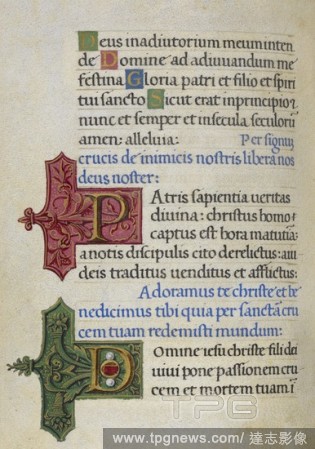 Deus inadiutorium meum inten
de Domine ad adiuuandum me
festina Gloria patri et filio et spiri
tui sancto Sicut erat inprincipio
nunc et semper et insecula seculorū
amen: alleluia: Per signū
crucis de inimicis nostris libera nos
deus noster:
Patris sapientia ueritas
diuina: christus homo
captus est hora matutīa:
a notis discipulis cito derelictus: a iu
deis traditus uenditus et afflictus:
Adoramus te christe et be
nedicimus tibi quia per sanctā cru
cem tuam redemisti mundum:
Domine iesu christe fili dei
uiui pone passionem cru
cem et mortem tuam ī
TPG
www.tpgnews.com/ 達志影像